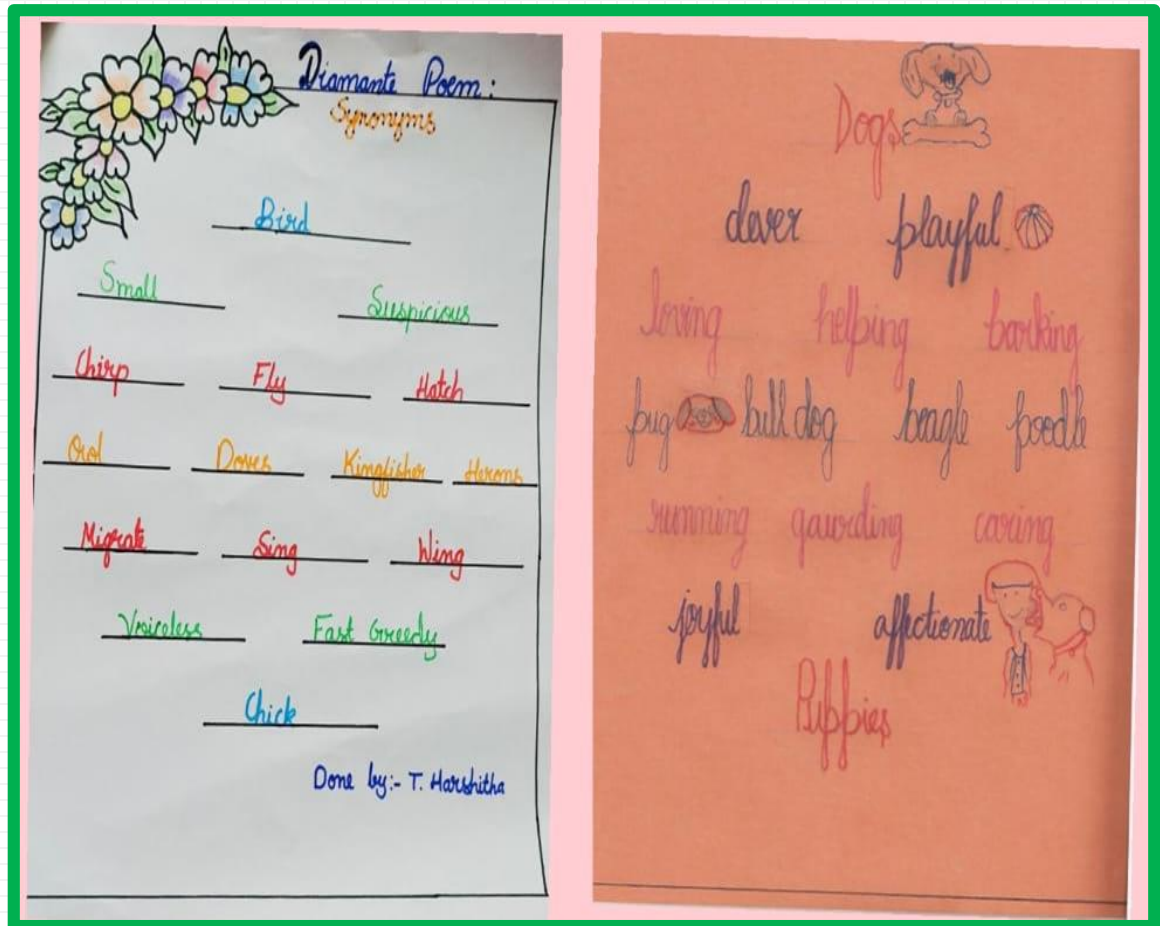 Diamante Poem:
Synonyms
Bird
Small Suspicious
Chirp Fly Hatch
Owl Doves Kingfisher Herons
Migrate Sing Wing
Voiceless Fast Greedy
Chick
Done by:- T. Harshitha
Dogs
clever playful
loving helping barking
pug bull dog beagle poodle
running gaurding caring
joyful affectionate
Puppies